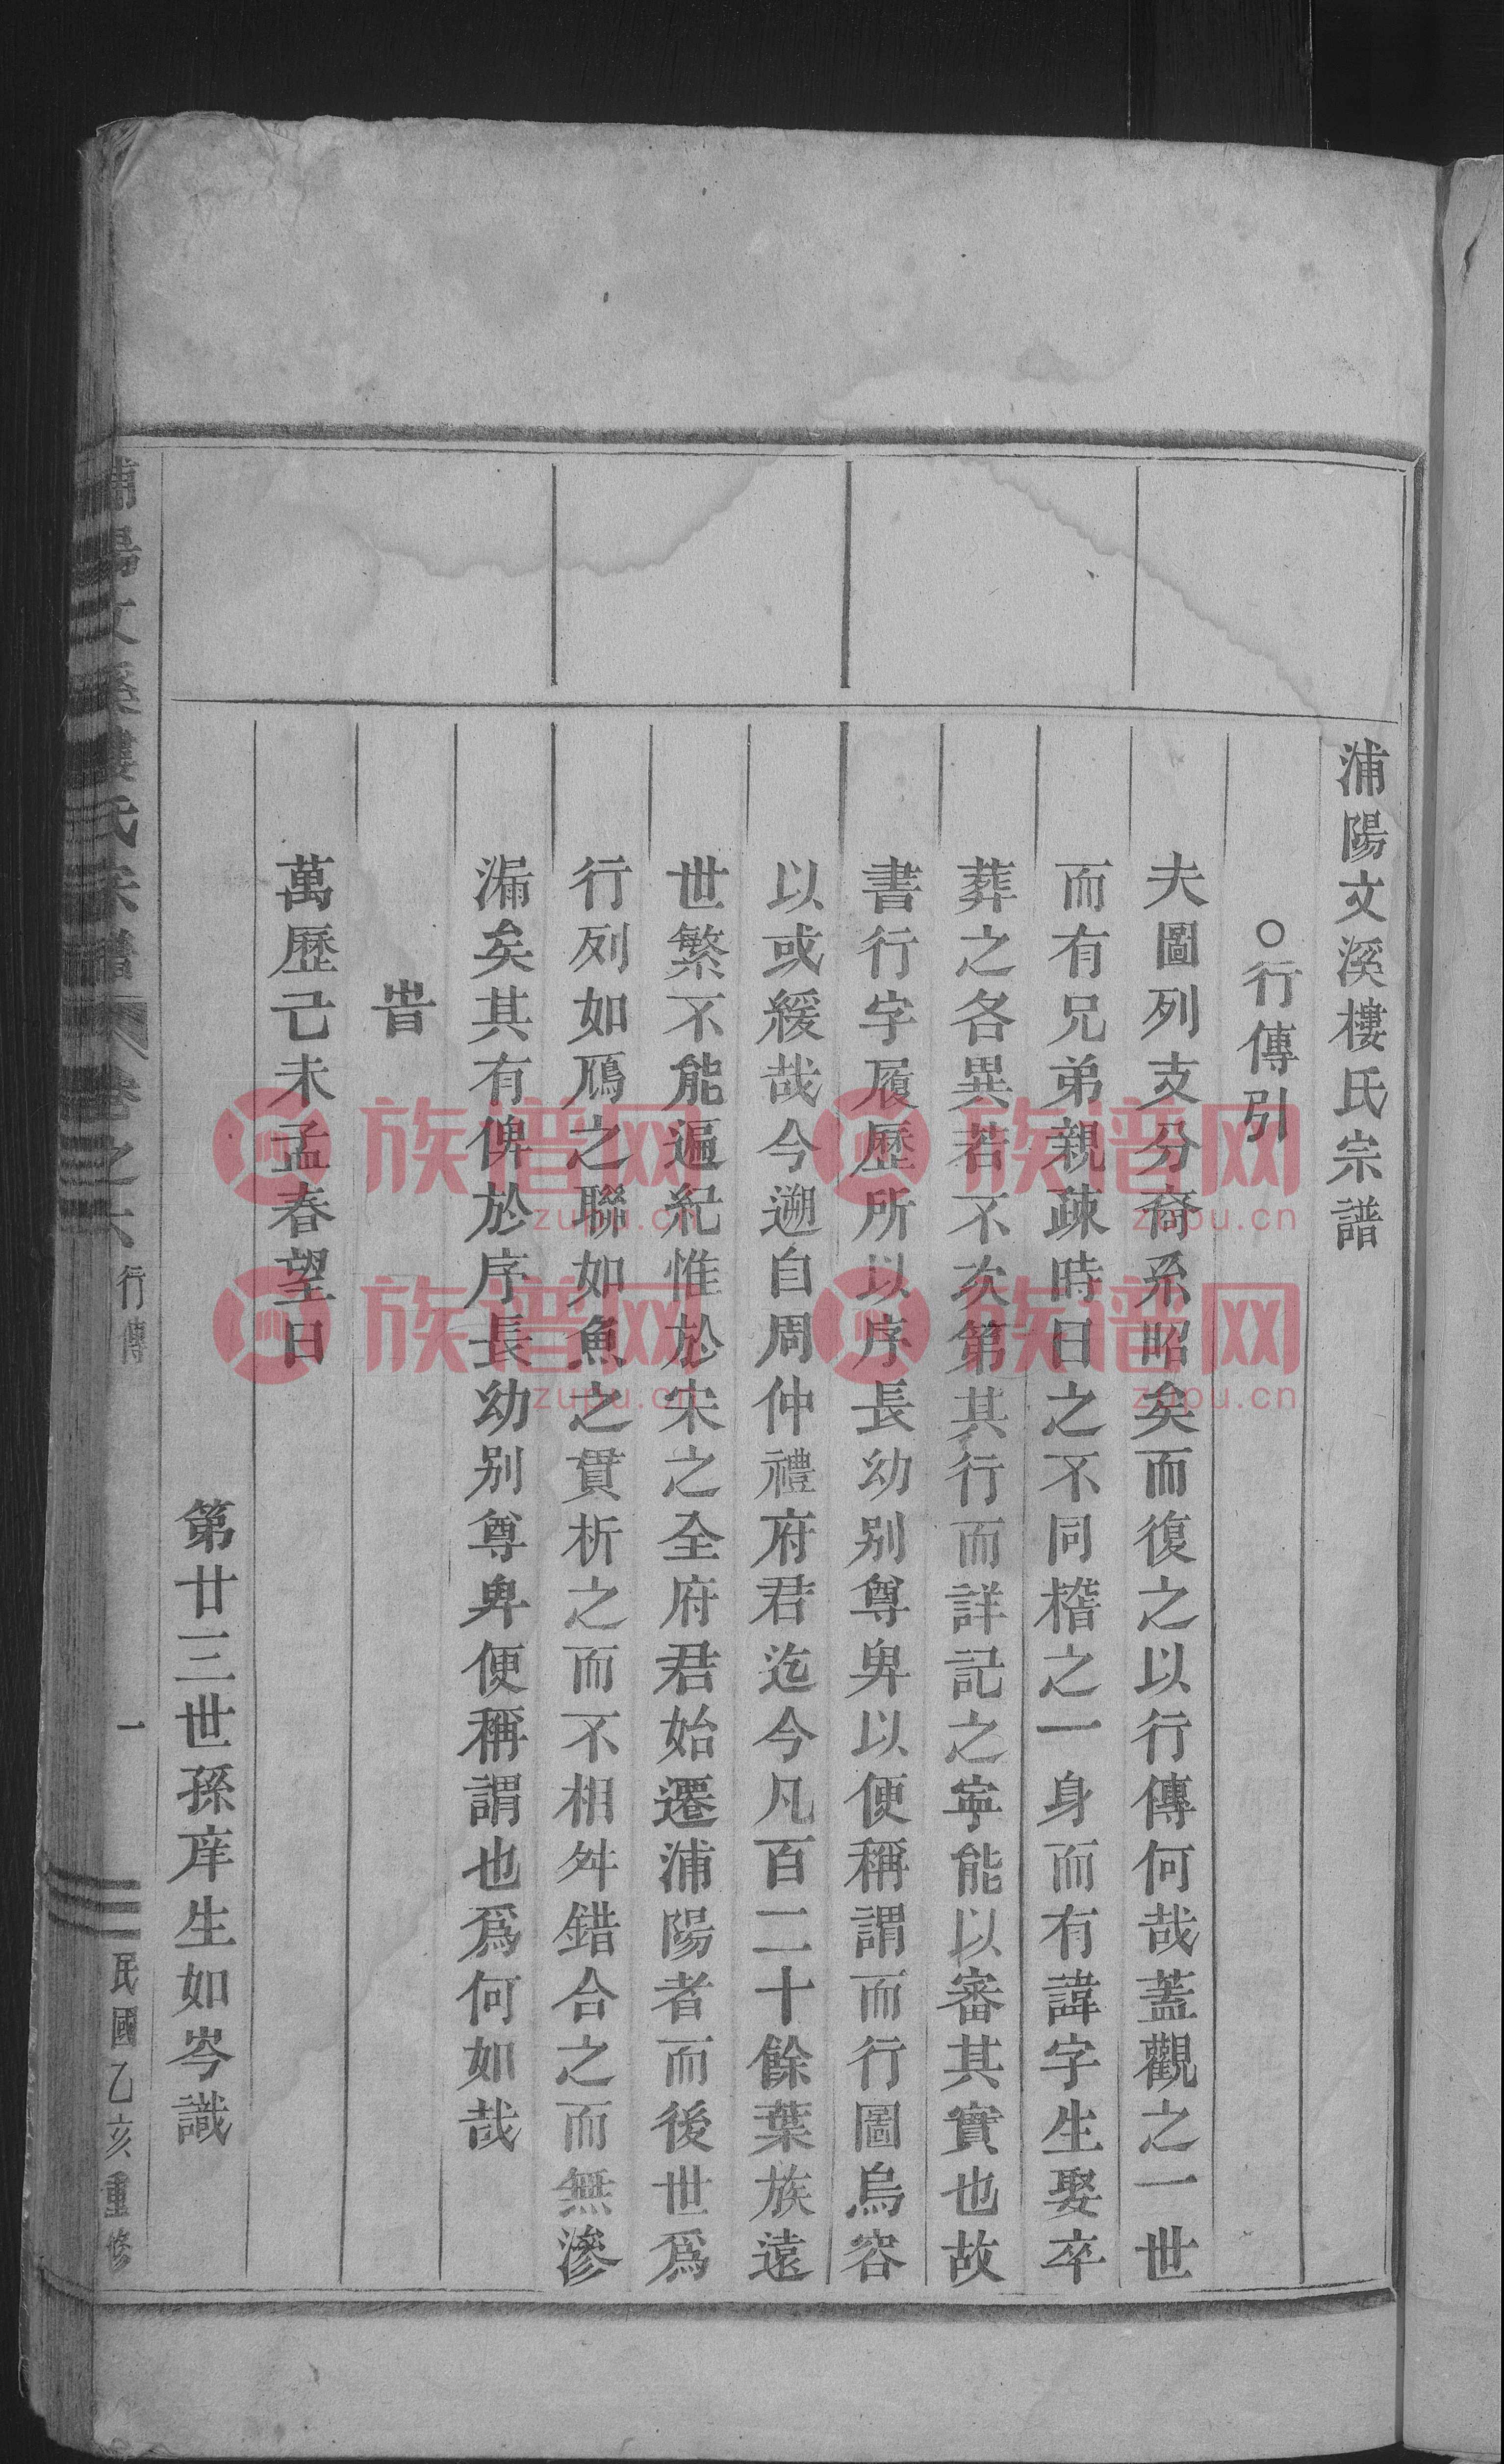 浦陽文溪樓氏宗譜
○行傳引
夫圖列支分裔系昭矣而復之以行傳何哉蓋觀之一世
而有兄弟親疎時日之不同稽之一身而有諱字生娶卒
葬之各異若不次第其行而詳記之寧能以審其實也故
書行字履歷所以序長幼别尊卑以便稱謂而行圖烏容
以或緩哉今遡自周仲禮府君迄今凡百二十餘葉族遠
世繁不能遍紀惟於宋之全府君始遷浦陽者而後世爲
行列如鴈之聯如魚之貫析之而不相舛錯合之而無滲
漏矣其有俾於序長幼别尊卑便稱謂也爲何如哉
旹
萬歷己未孟春望日
第廿三世孫庠生如岑識
浦陽文溪樓氏宗譜 卷之六 行傳 一 民國乙亥重修
族谱网 zupu.cn
族谱网 zupu.cn
族谱网 zupu.cn
族谱网 zupu.cn